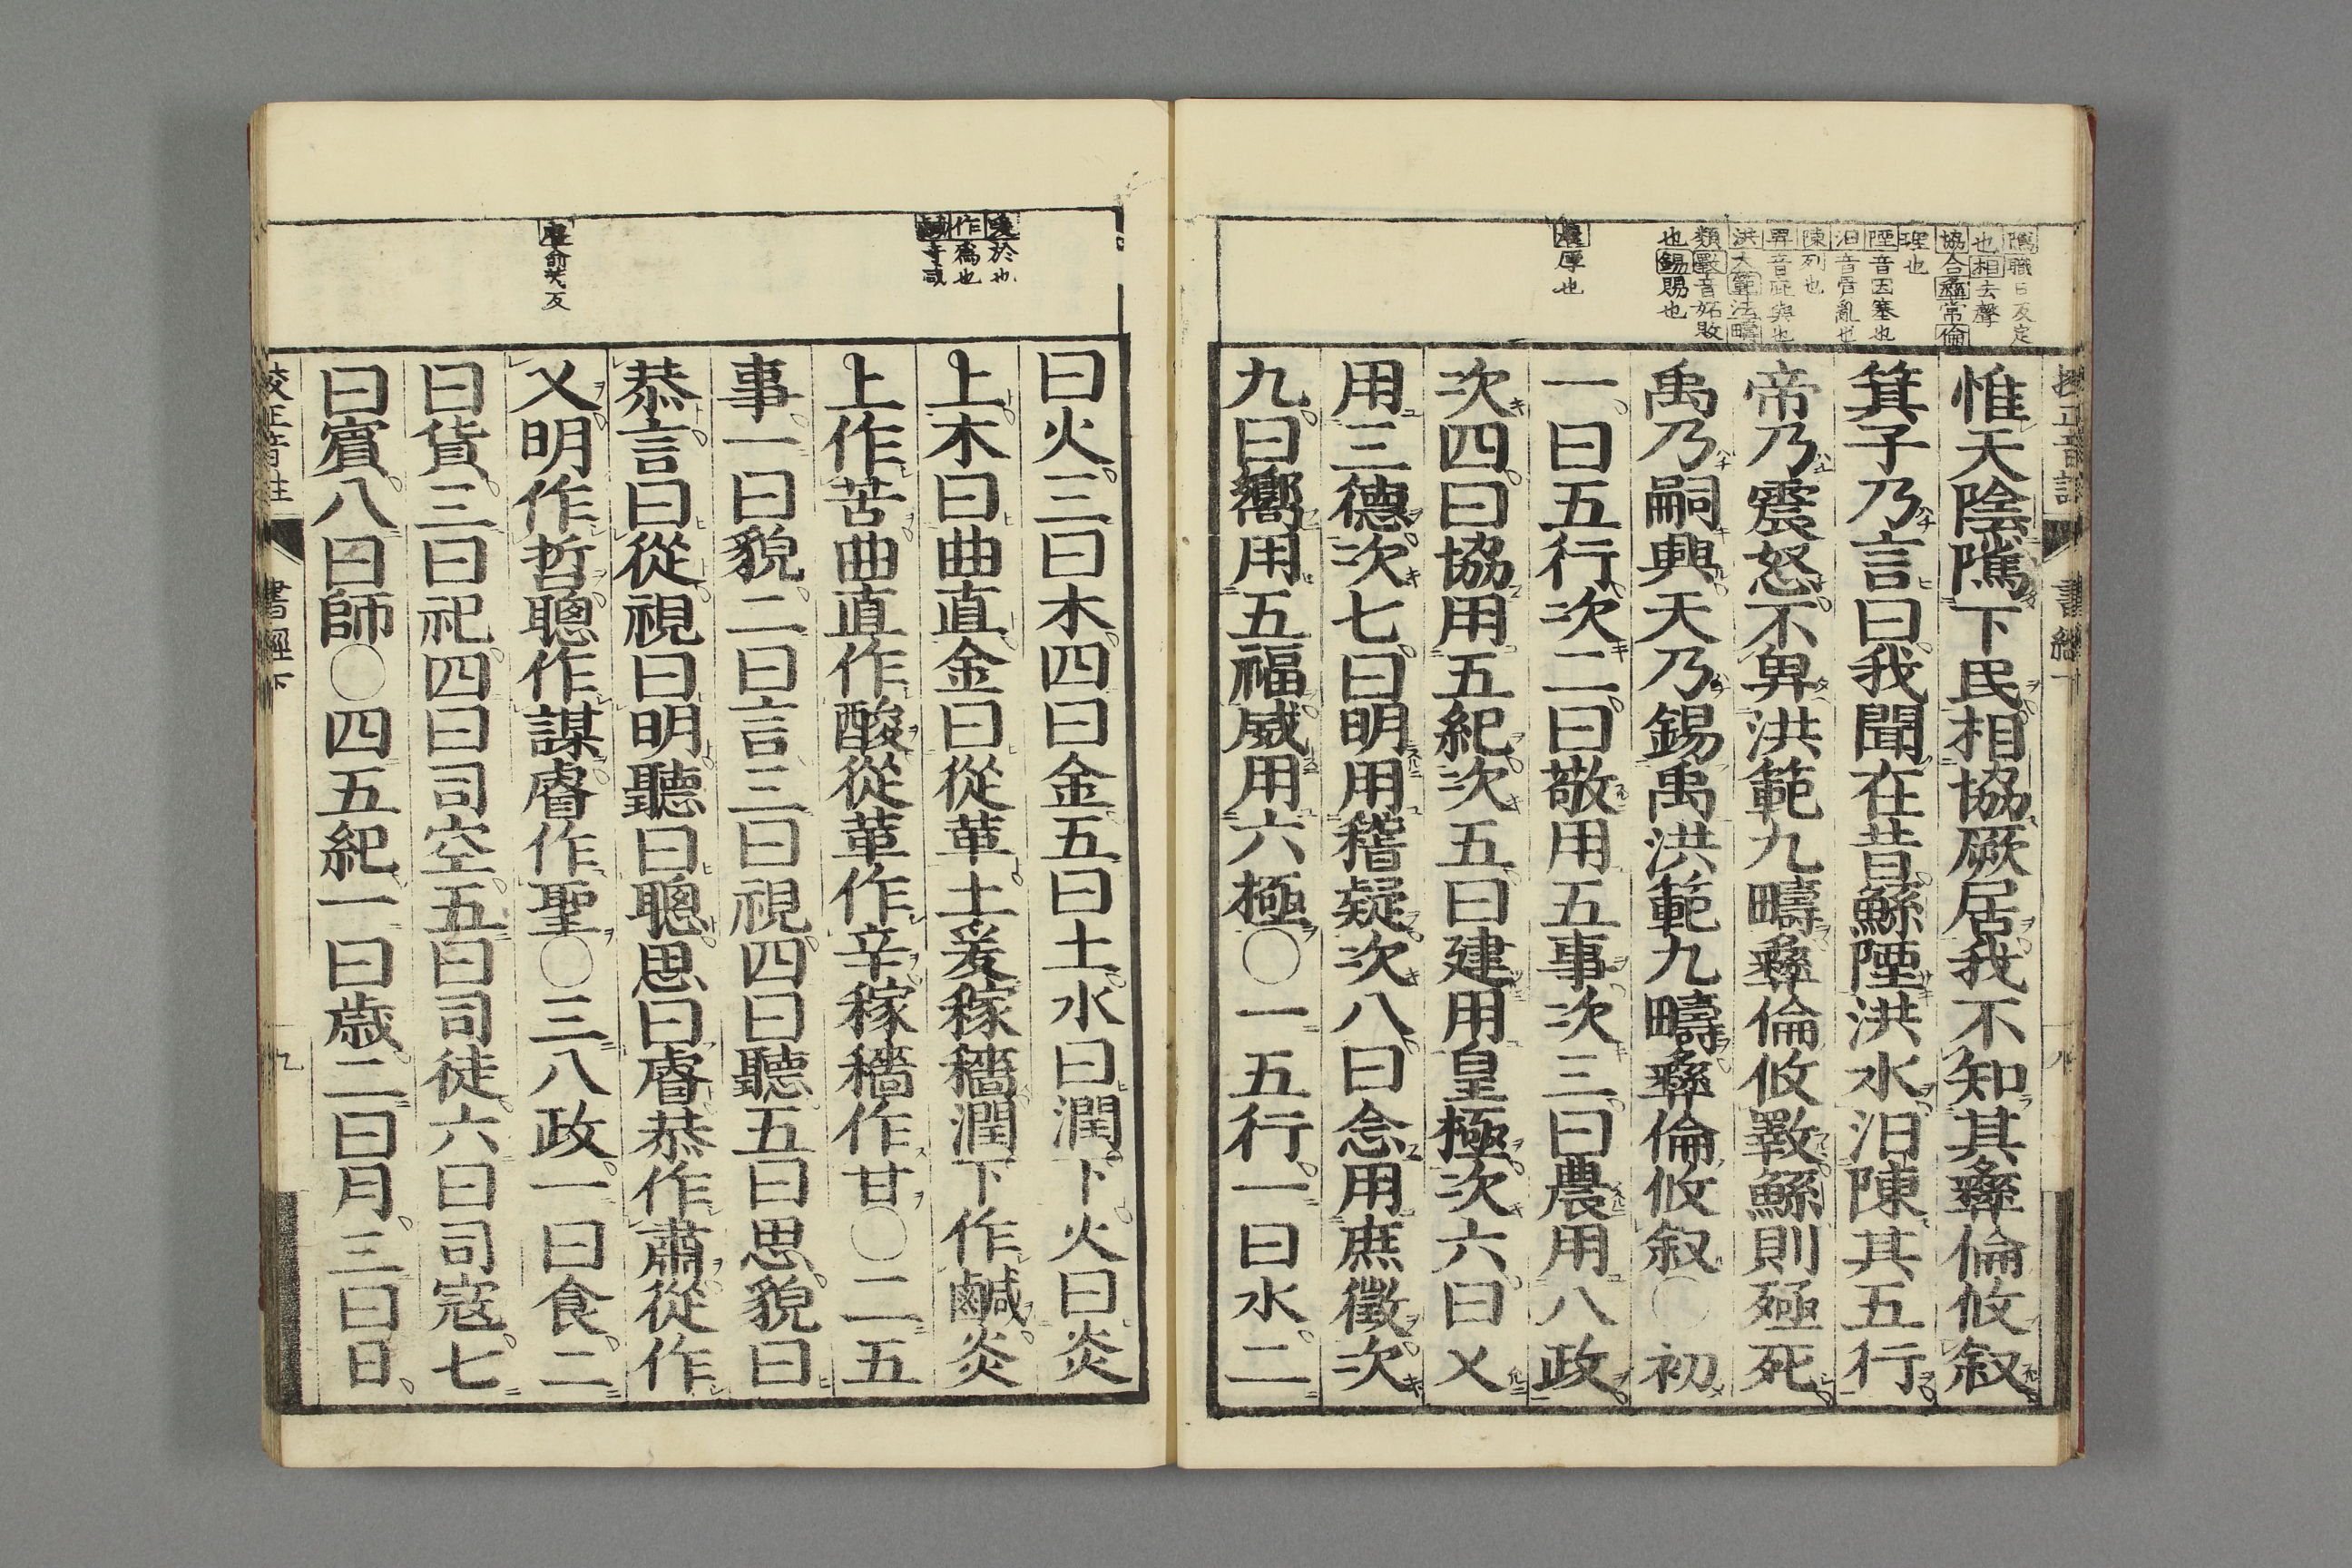 惟天陰隲下民相協厥居我不知其彝倫攸叙
箕子乃言曰我聞在昔鯀陻洪水汨陳其五行
帝乃震怒不畀洪範九疇彝倫攸斁鯀則殛死
禹乃嗣興天乃錫禹洪範九疇彝倫攸叙○初
一曰五行次二曰敬用五事次三曰農用八政
次四曰協用五紀次五曰建用皇極次六曰乂
用三德次七曰明用稽疑次八曰念用庶徵次
九曰嚮用五福威用六極○一五行一曰水二
隲職日反定
也相去聲
協合彝常倫
理也
陻音因塞也
汨音骨亂也
陳列也
畀音庇與也
洪大範法疇
類斁音妬敗
也錫賜也
農厚也
書經下
八
曰火三曰木四曰金五曰土水曰潤下火曰炎
上木曰曲直金曰從革土爰稼穡潤下作鹹炎
上作苦曲直作酸從革作辛稼穡作甘○二五
事一曰貌二曰言三曰視四曰聽五曰思貌曰
恭言曰從視曰明聽曰聰思曰睿恭作肅從作
乂明作哲聰作謀睿作聖○三八政一曰食二
曰貨三曰祀四曰司空五曰司徒六曰司寇七
曰賓八曰師○四五紀一曰歲二曰月三曰日
爰於也
作爲也
鹹音咸
校正音註
書經下
九